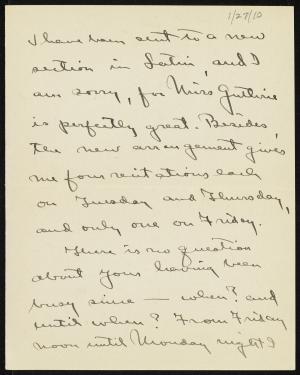 1/27/10
I have been sent to a new
section in Latin, and I
am sorry, for Miss Guthrie
is perfectly great. Besides,
the new arrangement gives
me four recitations each
on Tuesday and Thursday,
and only one on Friday.
There is no question
about yours having been
busy since — when? and
until when? From Friday
noon until Monday night I